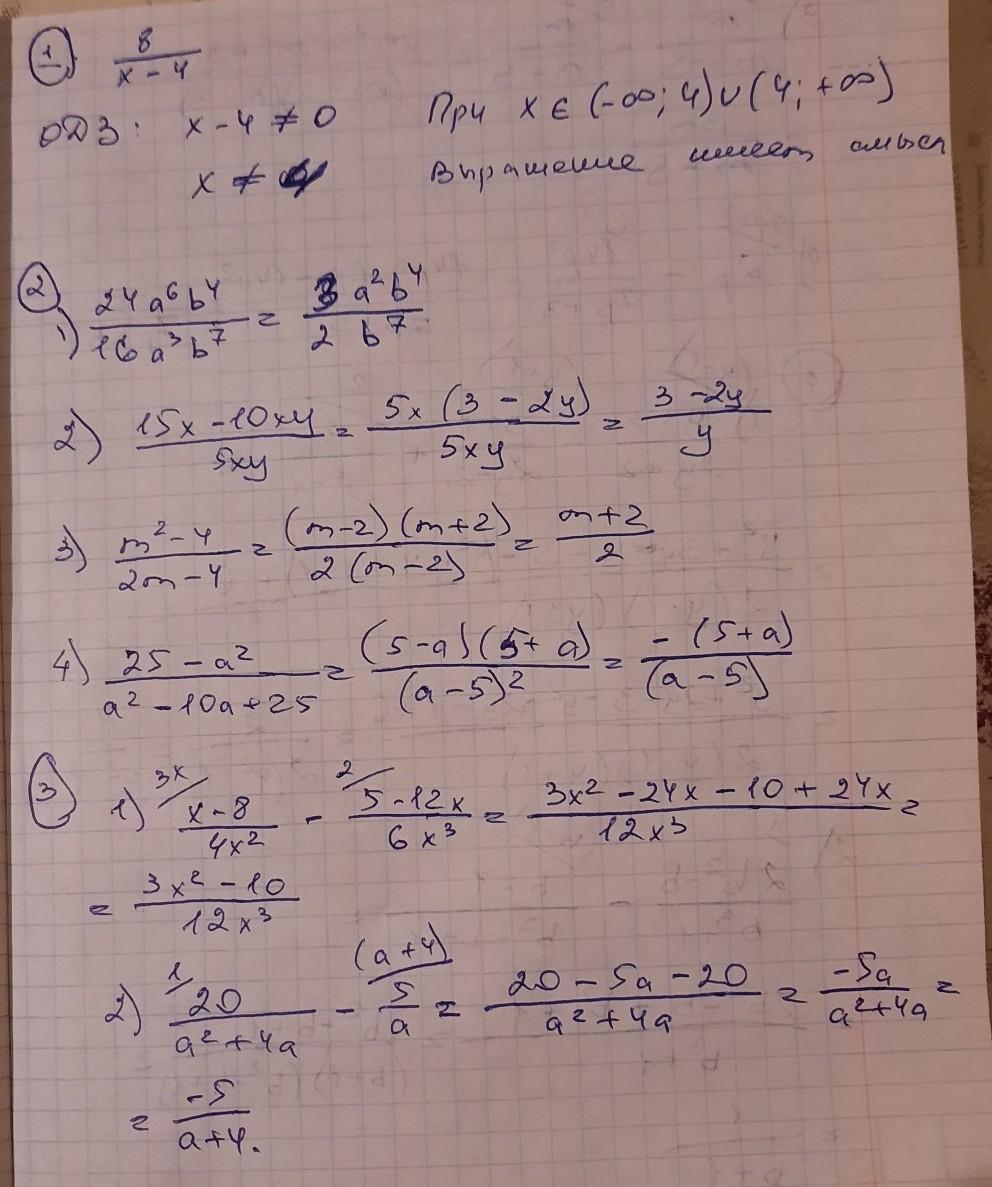 ① 8/(x - 4)
ОДЗ: x - 4 ≠ 0 При x ∈ (-∞; 4) ∪ (4; +∞)
x ≠ 4 Выражение имеет смысл
② 1) 24a⁶b⁴/16a³b⁷ = 3a²b⁴/2b⁷
2) (15x - 10xy)/5xy = 5x(3 - 2y)/5xy = (3 - 2y)/y
3) (m² - 4)/(2m - 4) = (m - 2)(m + 2)/2(m - 2) = (m + 2)/2
4) (25 - a²)/(a² - 10a + 25) = (5 - a)(5 + a)/(a - 5)² = -(5 + a)/(a - 5)
③ 1) 3x/ (x - 8)/4x² - 2/ (5 - 12x)/6x³ = (3x² - 24x - 10 + 24x)/12x³ =
= (3x² - 10)/12x³
2) 1/ 20/(a² + 4a) - (a + 4)/ 5/a = (20 - 5a - 20)/(a² + 4a) = -5a/(a² + 4a) =
= -5/(a + 4).